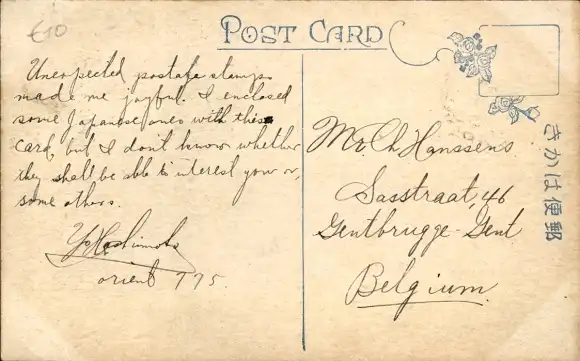 €10
POST CARD
Unexpected postage stamps
made me joyful. I enclosed
some Japanese ones with this
card, but I don't know whether
they shall be able to interest you or
some others.
Y. Hashimoto
orient 775.
Mr. Ch Hanssens
Sasstraat, 46
Gentbrugge-Gent
Belgium.
きかは便郵